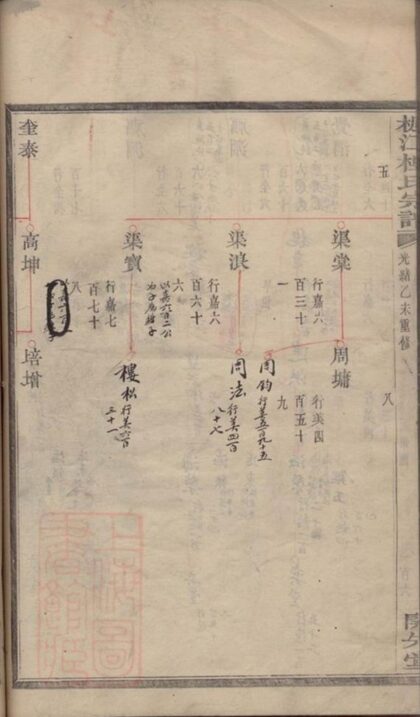 光緒乙未重修
八
五
渠棠
行嘉六
百三十
一
周墉
行美四
百五十
九
周鈞
行美五百九十五
渠浪
行嘉六
百六十
六
周法
行美四百
八十七
渠寶
行嘉七
百七十
八
櫻松
行美六百
三十一
奎泰
高坤
培增
上海圖
書館藏